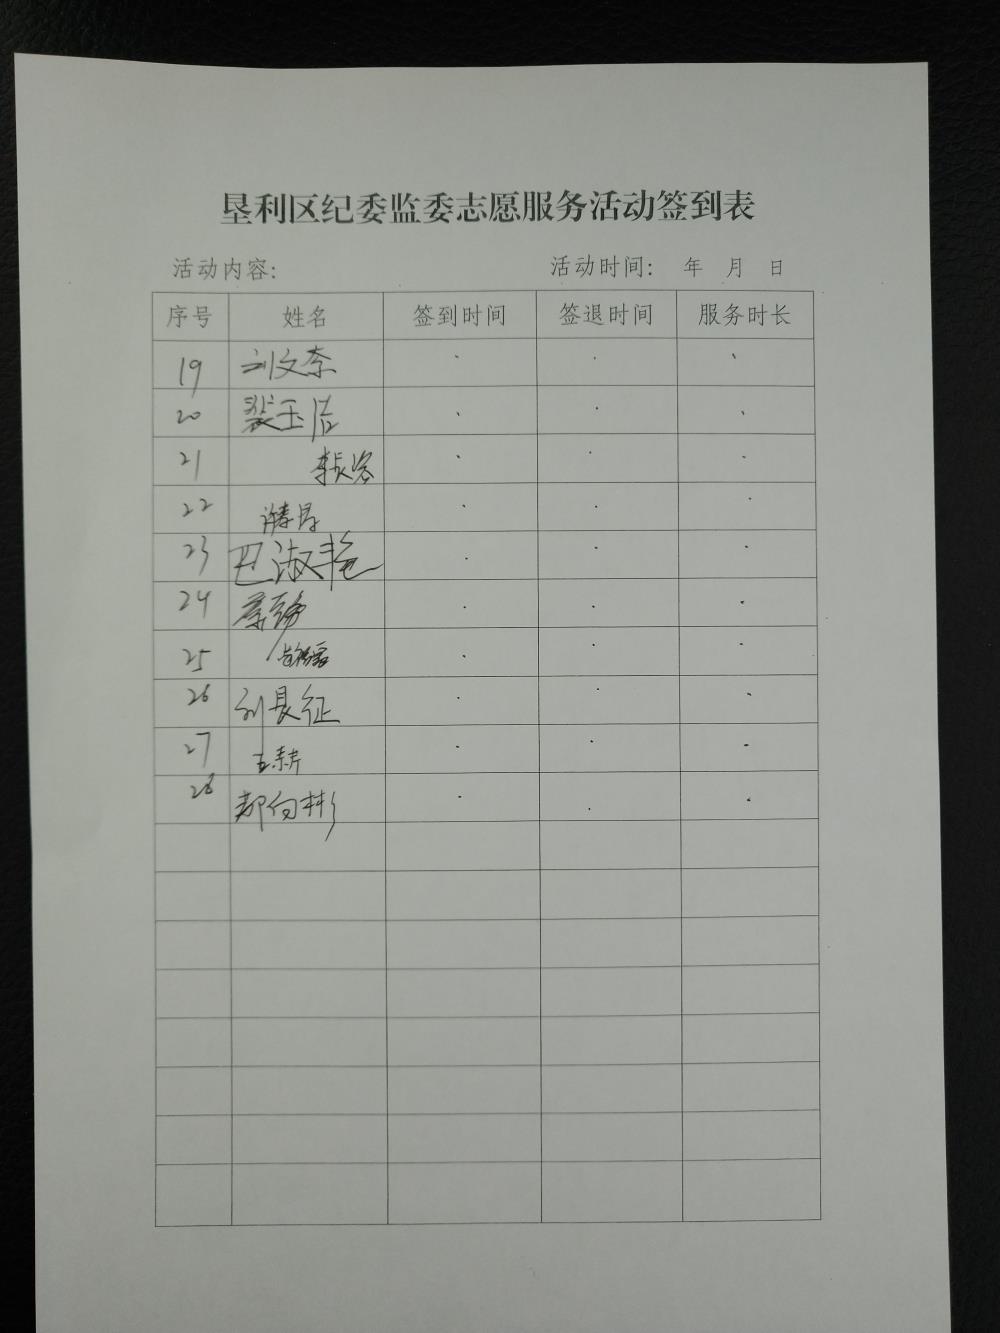 垦利区纪委监委志愿服务活动签到表
活动内容: 活动时间: 年 月 日
序号 姓名 签到时间 签退时间 服务时长
19 刘文奈
20 裴玉洁
21
22
23 巴淑艳
24
25
26 刘长征
27
28 郝向彬